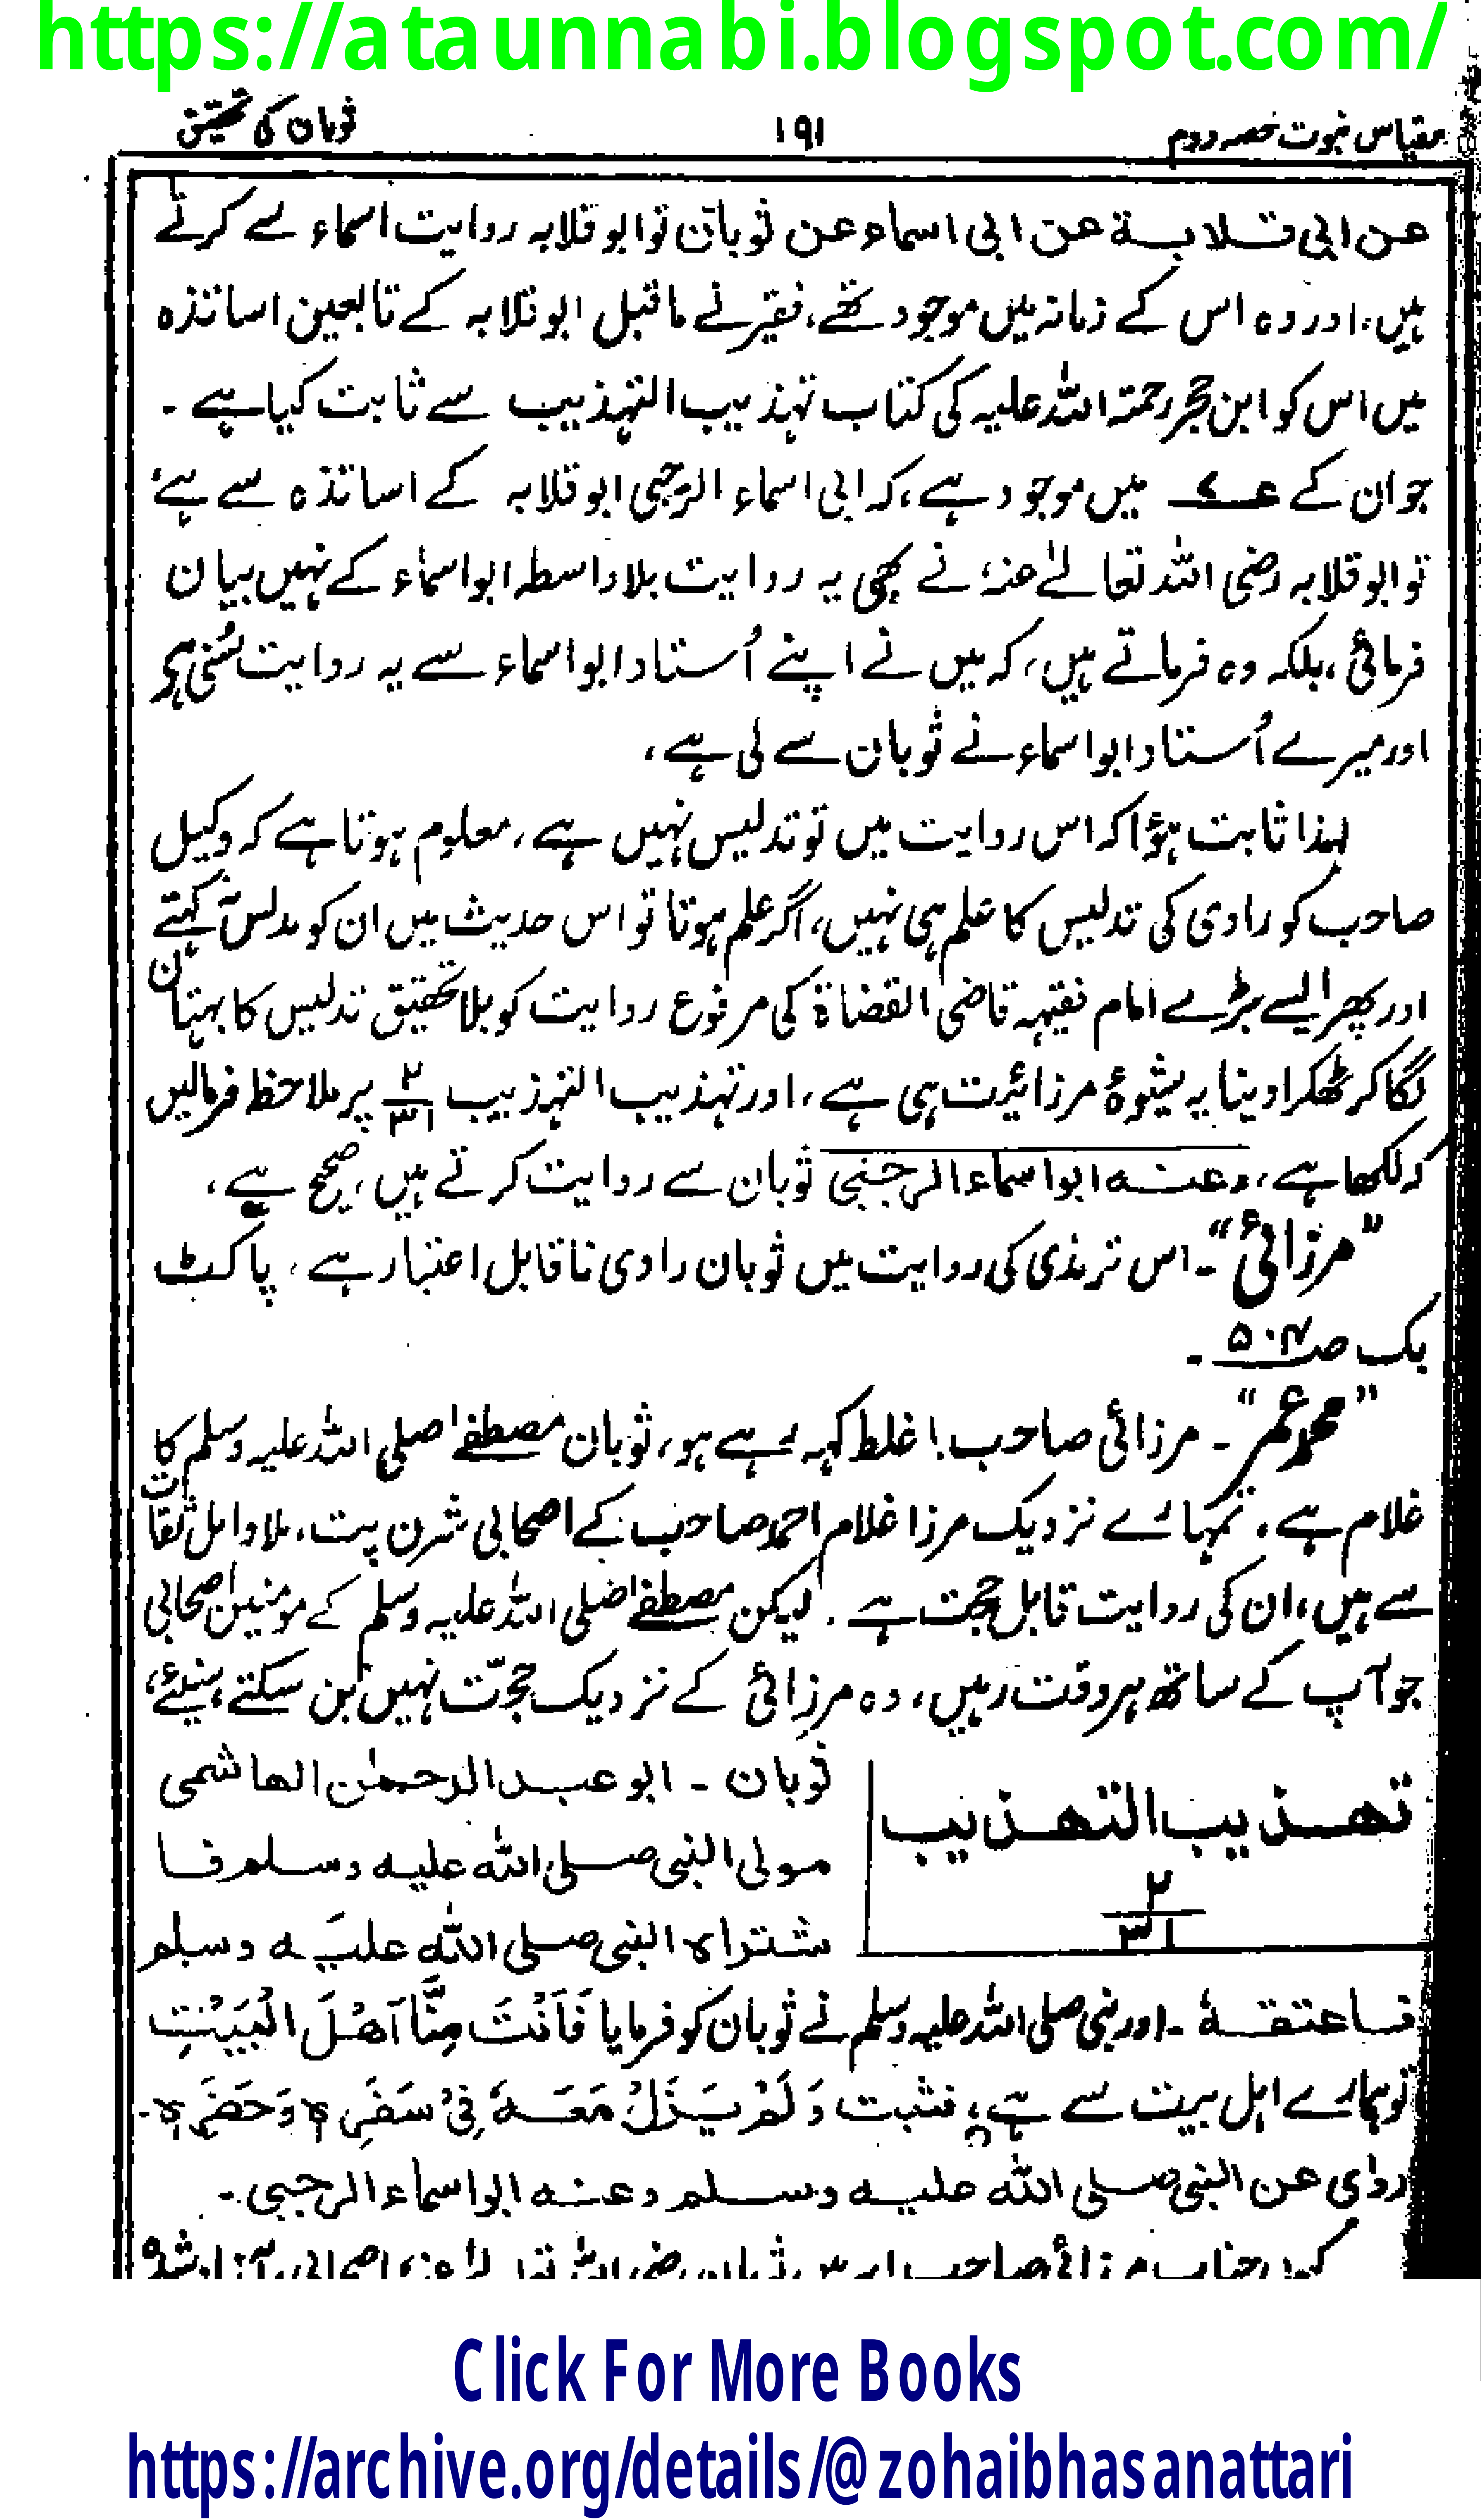 https://ataunnabi.blogspot.com/
مقیاس نبوت حصہ دوم ۱۹۱ ثوبان کی تحقیق
عن ابی قلابۃ عن ابی اسماء عن ثوبان تو ابو قلابہ روایت اسماء سے کرتے
ہیں، اور وہ اس کے زمانہ میں موجود تھے، فقیر نے ماقبل ابو قلابہ کے تابعین اساتذہ
میں اس کو ابن حجر رحمۃ اللہ علیہ کی کتاب تہذیب التہذیب سے ثابت کیا ہے ۔
جو ان کے میں موجود ہے، کہ ابی اسماء الرجبی ابو قلابہ کے اساتذہ سے ہے،
تو ابو قلابہ رضی اللہ تعالےٰ عنہ، نے بھی یہ روایت بلا واسطہ ابو اسماء کے نہیں بیان
فرمائی، بلکہ وہ فرماتے ہیں، کہ میں نے اپنے اُستاد ابو اسماء سے یہ روایت سُنی ہے
اور میرے اُستاد ابو اسماء نے ثوبان سے لی ہے،
لہذا ثابت ہؤا کہ اس روایت میں تو تدلیس نہیں ہے، معلوم ہوتا ہے کہ وکیل
صاحب کو راوی کی تدلیس کا علم ہی نہیں، اگر علم ہوتا تو اس حدیث میں ان کو مدلس نہ کہتے
اور پھر ایسے بڑے امام فقیہہ قاضی القضاۃ کی مرفوع روایت کو بلا تحقیق تدلیس کا بہتان
لگا کر ٹھکرا دینا یہ شیوۂ مرزائیت ہی ہے، اور تہذیب التہذیب ۲/۳۱ پر ملاحظ فرمالیں
کہ لکھا ہے، وعنہ ابو اسماء الرجبی ثوبان سے روایت کرتے ہیں، صحیح ہے،
”مرزائی“ ۔ اس ترمذی کی روایت میں ثوبان راوی ناقابل اعتبار ہے، پاکٹ
بک صہ ۵۰۴ ۔
”محمد عمر“ ۔ مرزائی صاحب! غلط کہہ رہے ہو، ثوبان مصطفےٰ صلی اللہ علیہ وسلم کا
غلام ہے، تمہارے نزدیک مرزا غلام احمد صاحب کے اصحابی شرن پت، ملا وامل ثقات
سے ہیں، ان کی روایت قابل حجت ہے ۔ لیکن مصطفےٰ صلی اللہ علیہ وسلم کے مومنین اصحابی
جو آپ کے ساتھ ہر وقت رہیں، وہ مرزائی کے نزدیک حجّت نہیں بن سکتے، سنیئے،
تہذیب التہذیب ۲/۳۱
ثوبان ۔ ابو عبد الرحمٰن الھاشمی
مولی النبی صلی اللہ علیہ وسلم فا
شتراہ النبی صلی اللہ علیہ وسلم
فاعتقہٗ ۔ اور نبی صلی اللہ علیہ وسلم نے ثوبان کو فرمایا فَاَنْتَ مِنَّا اَھْلَ الْبَیْتِ
تو ہمارے اہل بیت سے ہے، فثبت وَلَمْ یَزَلْ مَعَہٗ فِیْ سَفَرِہٖ وَحَضَرِہٖ ۔
روٰی عن النبی صلی اللہ علیہ وسلم وعنہ ابو اسماء الرجبی ۔
Click For More Books
https://archive.org/details/@zohaibhasanattari